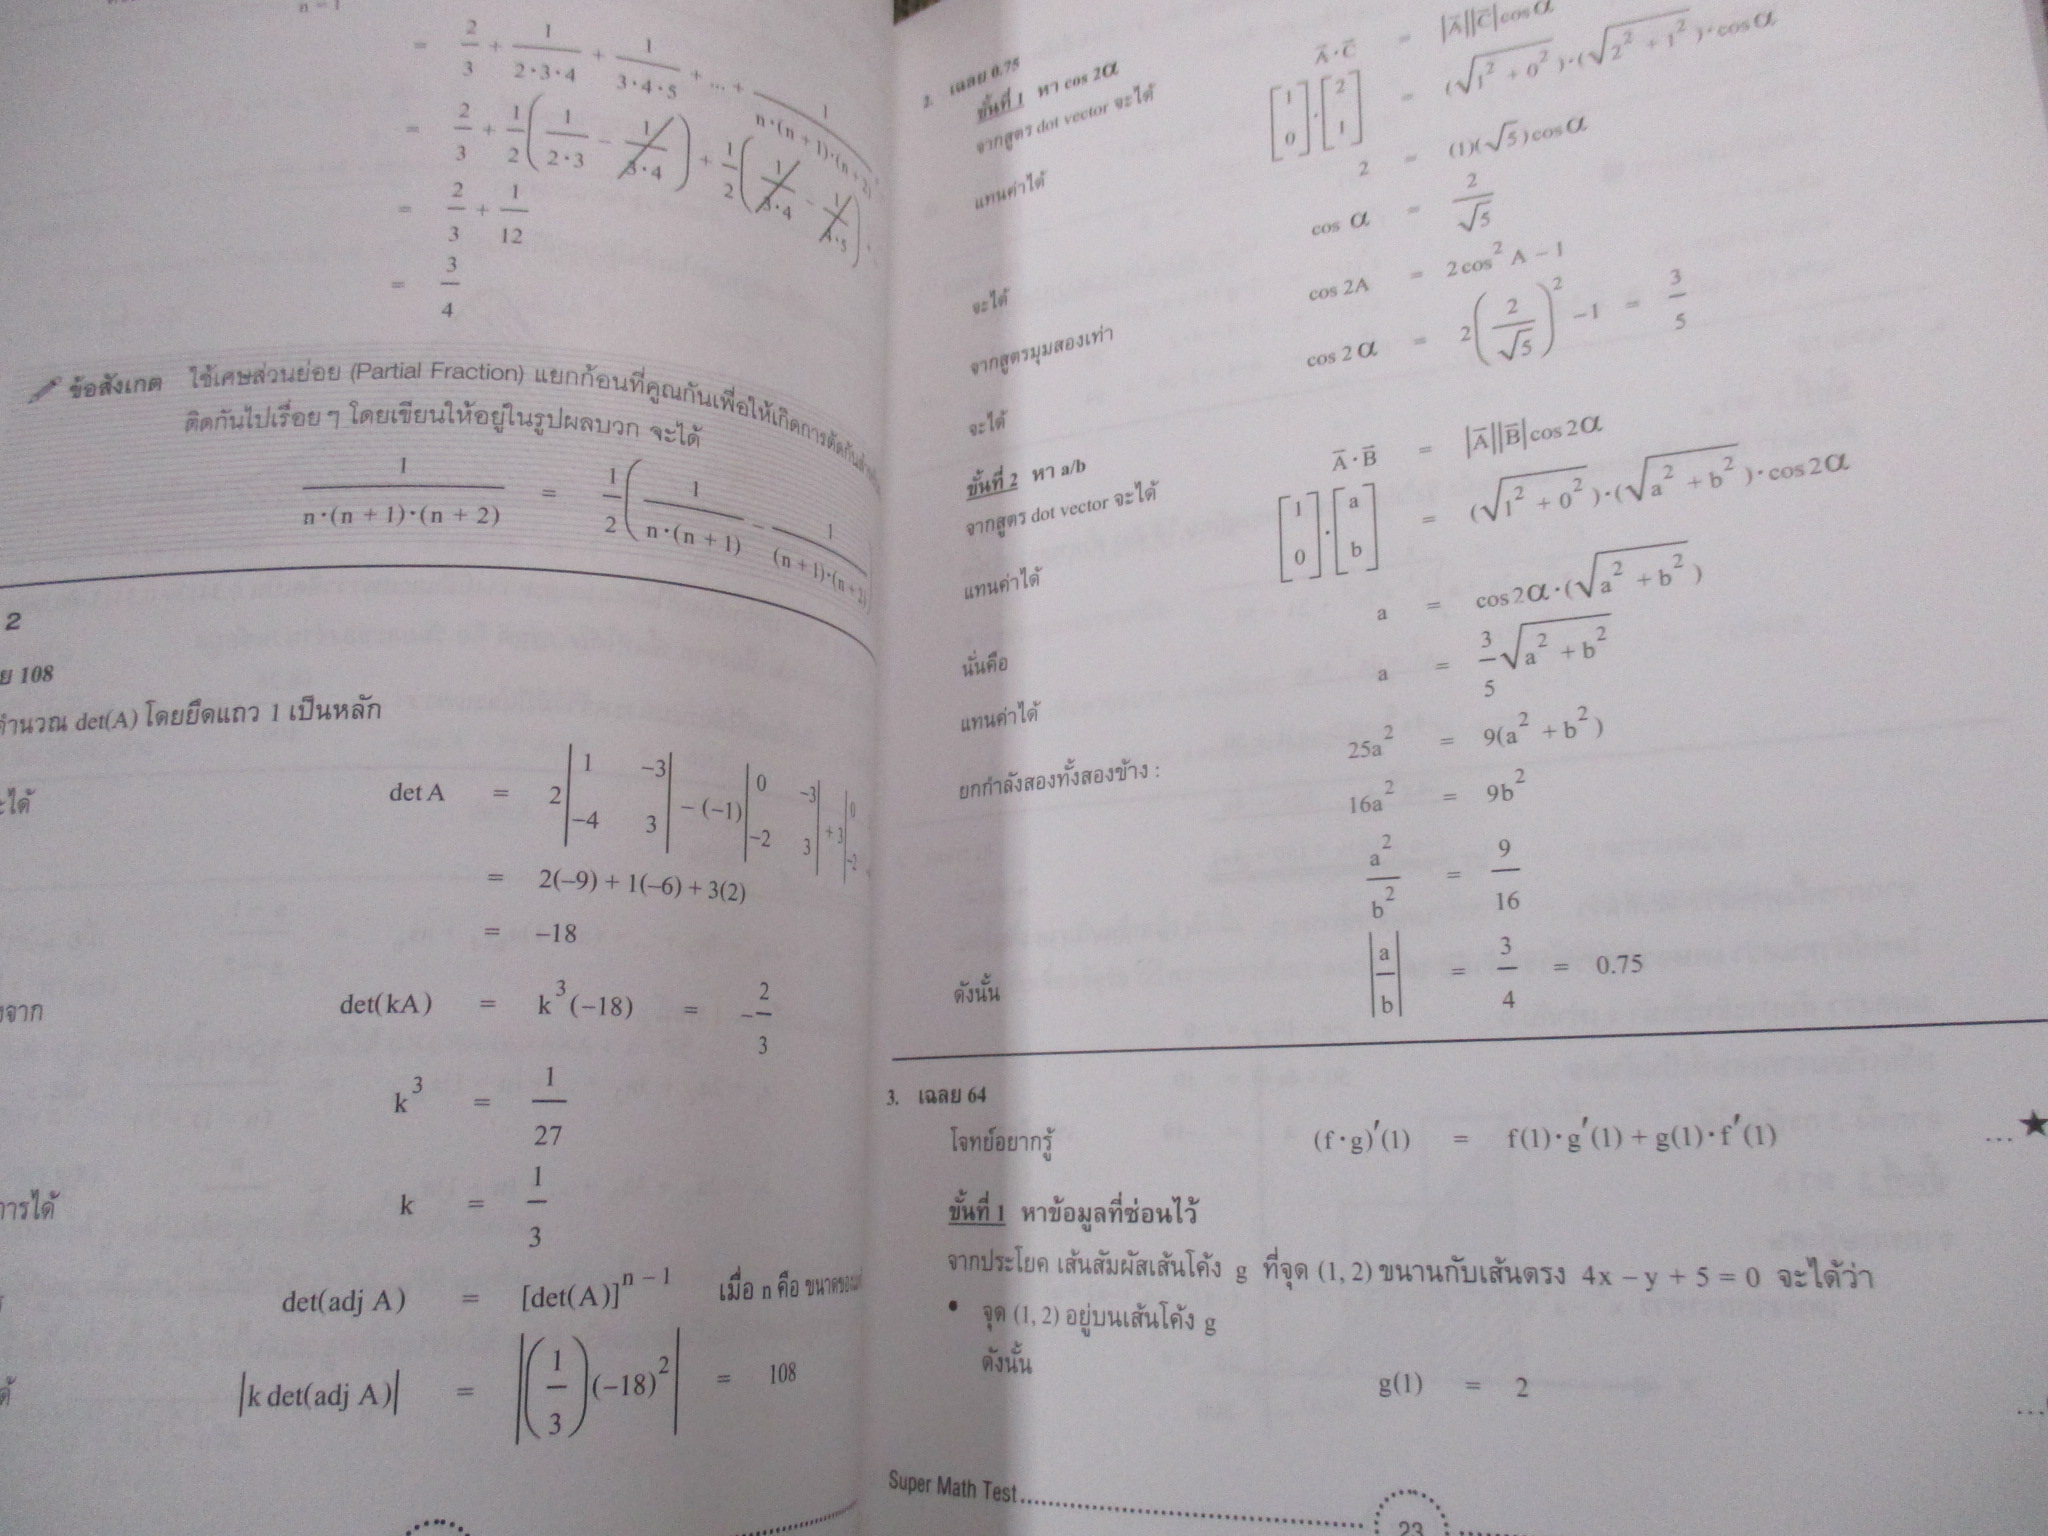 n = 1
= 2/3 + 1/(2·3·4) + 1/(3·4·5) + ... + 1/(n·(n + 1)·(n + 2))
= 2/3 + 1/2(1/(2·3) − 1/(3·4)) + 1/2(1/(3·4) − 1/(4·5))
= 2/3 + 1/12
= 3/4
ข้อสังเกต ใช้เศษส่วนย่อย (Partial Fraction) แยกก้อนที่คูณกันเพื่อให้เกิดการตัดกัน
ติดกันไปเรื่อยๆ โดยเขียนให้อยู่ในรูปผลบวก จะได้
1/(n·(n + 1)·(n + 2)) = 1/2(1/(n·(n + 1)) − 1/((n + 1)·(n + 2))
2
108
det(A) โดยยึดแถว 1 เป็นหลัก
det A = 2|1 −3; −4 3| − (−1)|0 −3; −2 3| + 3|0; −2
= 2(−9) + 1(−6) + 3(2)
= −18
det(kA) = k³(−18) = −2/3
k³ = 1/27
k = 1/3
det(adj A) = [det(A)]ⁿ⁻¹ เมื่อ n คือ
|k det(adj A)| = |(1/3)(−18)²| = 108
2. เฉลย 0.75
ขั้นที่ 1 หา cos 2α
จากสูตร dot vector จะได้ A̅·C̅ = |A̅||C̅|cos α
แทนค่าได้ [1; 0]·[2; 1] = (√(1² + 0²))·(√(2² + 1²))·cos α
2 = (1)(√5)cos α
จะได้ cos α = 2/√5
จากสูตรมุมสองเท่า cos 2A = 2cos² A − 1
จะได้ cos 2α = 2(2/√5)² − 1 = 3/5
ขั้นที่ 2 หา a/b
จากสูตร dot vector จะได้ A̅·B̅ = |A̅||B̅|cos 2α
แทนค่าได้ [1; 0]·[a; b] = (√(1² + 0²))·(√(a² + b²))·cos 2α
นั่นคือ a = cos 2α·(√(a² + b²))
แทนค่าได้ a = 3/5√(a² + b²)
ยกกำลังสองทั้งสองข้าง : 25a² = 9(a² + b²)
16a² = 9b²
a²/b² = 9/16
ดังนั้น |a/b| = 3/4 = 0.75
3. เฉลย 64
โจทย์อยากรู้ (f·g)′(1) = f(1)·g′(1) + g(1)·f′(1) ...★
ขั้นที่ 1 หาข้อมูลที่ซ่อนไว้
จากประโยค เส้นสัมผัสเส้นโค้ง g ที่จุด (1, 2) ขนานกับเส้นตรง 4x − y + 5 = 0 จะได้ว่า
• จุด (1, 2) อยู่บนเส้นโค้ง g
ดังนั้น g(1) = 2
Super Math Test
23